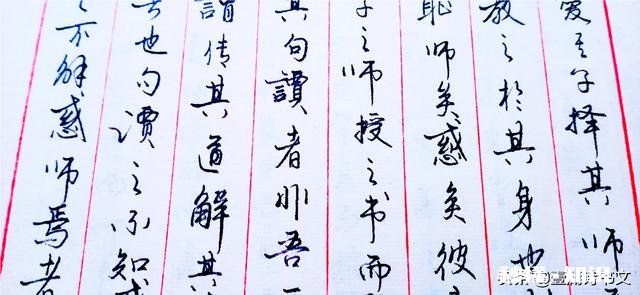 爱其子择其师
教之於其身也
耻师矣惑矣彼
子之师授之书而
其句讀者非吾
謂传其道解其
也句讀之不知惑
之不解惑师焉者